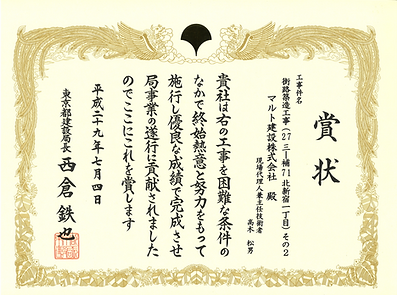 賞状
工事件名
街路築造工事(27三-補71北新宿一丁目)その2
マルト建設株式会社 殿
現場代理人兼主任技術者
高木 松男
貴社は右の工事を困難な条件の
なかで終始熱意と努力をもって
施行し優良な成績で完成させ
局事業の遂行に貢献されました
のでここにこれを賞します
平成二十九年七月四日
東京都建設局長 西倉 鉄也